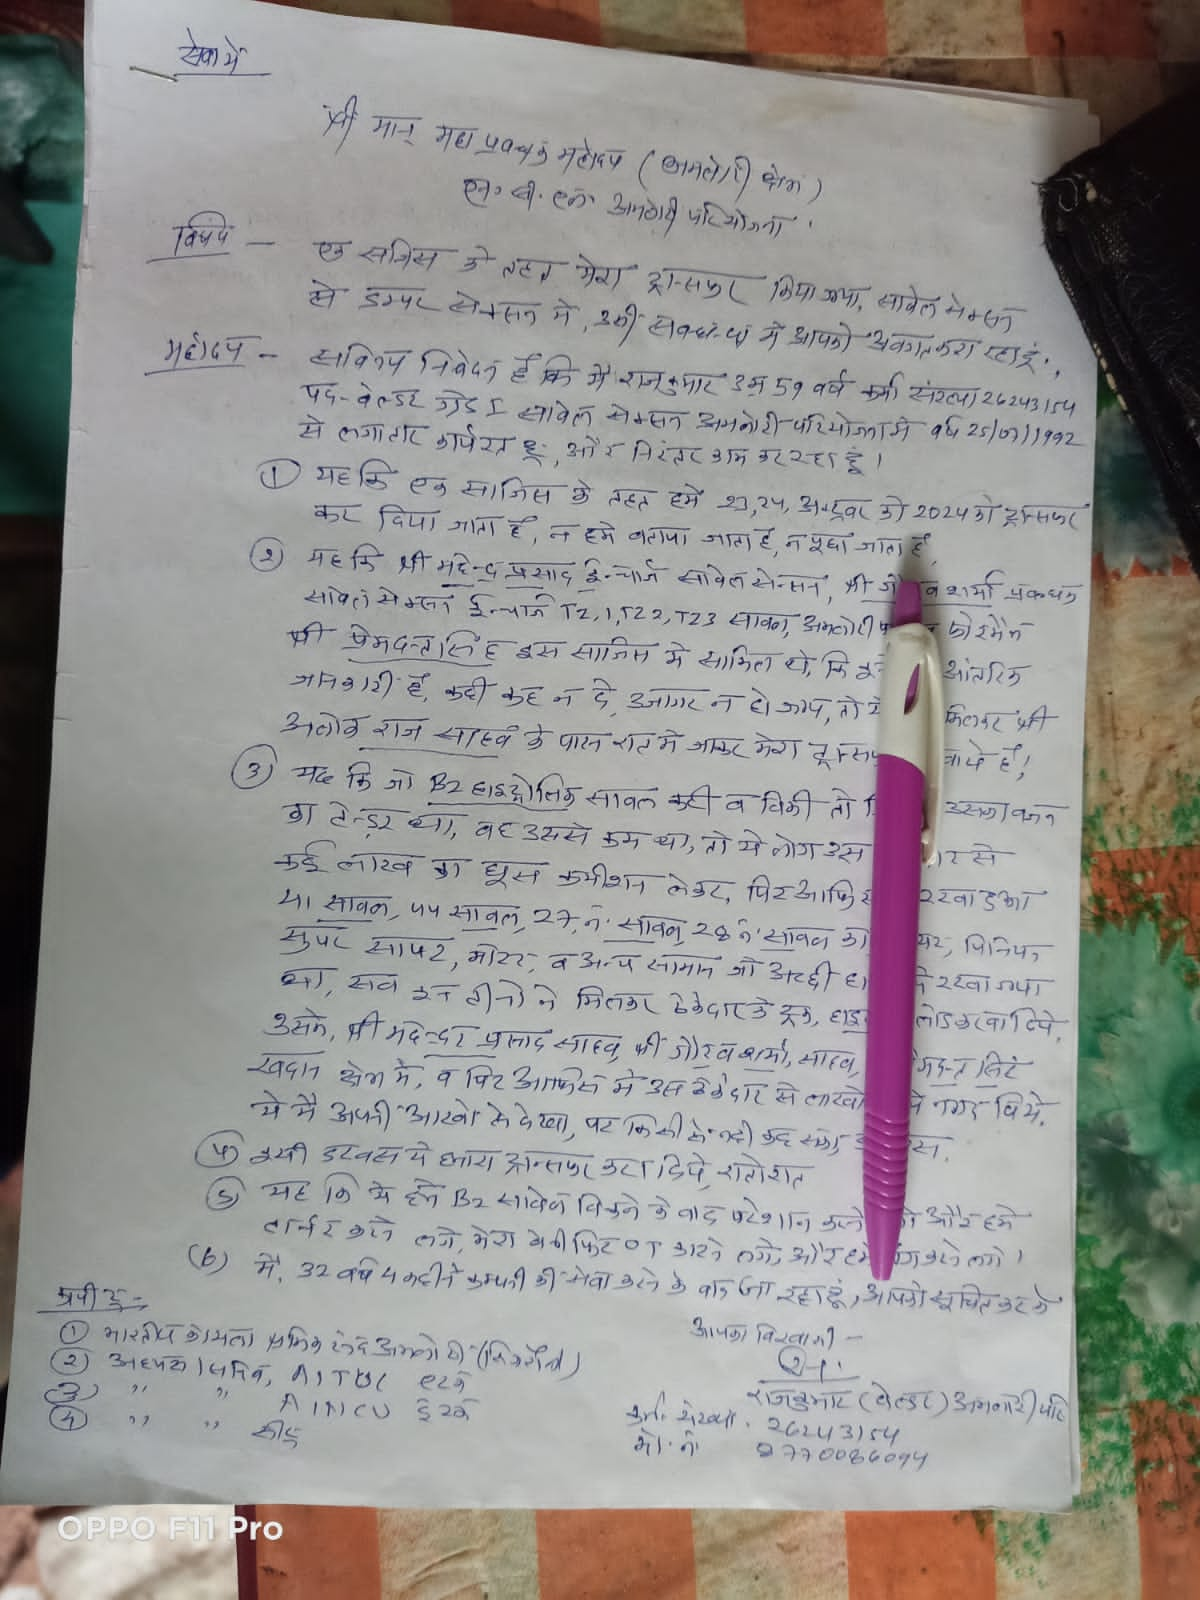 सेवा में
श्री मान् महा प्रबन्धक महोदय (अमलोरी क्षेत्र)
एन. सी. एल. अमलोरी परियोजना.
विषय - एक साजिस के तहत मेरा ट्रान्सफर किया गया, सावेल सेक्सन
से डम्पर सेक्सन मे, उसी सबन्ध में आपको अवगत करा रहा हूं.,
महोदय - सविनय निवेदन हैं कि मै राजकुमार उम्र 59 वर्ष कर्म संख्या 26243154
पद-वेल्डर ग्रेड I सावेल सेक्सन अमलोरी परियोजना मे वर्ष 25/07/1992
से लगातार कार्यरत हूं, और निरंतर काम कर रहा हूं।
① यह कि एक साजिस के तहत हमे 23,24, अक्टूबर को 2024 को ट्रान्सफर
कर दिया जाता हैं, न हमे बताया जाता हैं, न पूछा जाता हैं,
② यह कि श्री महेन्द्र प्रसाद ईन्चार्ज सावेल सेक्सन, श्री शर्मा प्रबन्धक
सावेल सेक्सन ईन्चार्ज T21, T22, T23 सावल, अमलोरी फोरमैन
श्री प्रेमदन्त सिंह इस साजिस मे सामिल थे, कि आंतरिक
जानकारी हैं, कही कह न दे, उजागर न हो जाय, तो मिलकर श्री
अलोक राज साहब के पास रात मे जाकर मेरा हैं।
③ यह कि जो B2 हाइड्रोलिक सावल कटी व बिकी तो उसका वजन
का टेन्डर था, वह उससे कम था, तो ये लोग उस से
कई लाख का घूस कमीशन लेकर, फिर आफिस
सावल, 44 सावल, 27 नं सावल, 28 नं सावल का पिनियन
सुपर साफ्ट, मोटर, व अन्य सामान जो अच्छी रखा गया
था, सब इन तीनो ने मिलकर ठेकेदार के ट्रक, लोड करवा दिये,
उसमे, श्री महेन्दर प्रसाद साहब, श्री गौरव शर्मा, साहब, सिंह
खदान क्षेत्र में, व फिर आफिस मे उस ठेकेदार से लाखो नगद लिये,
ये मैं अपनी आखो से देखा, पर किसी से नही कह सका,
④ इसी डरवस ये हमारा ट्रान्सफर करा दिये, रातोरात
⑤ यह कि ये हमे B2 सावेल बिकने के बाद परेशान करने और हमे
टार्चर करने लगे, मेरा OT काटने लगे, और हमे करने लगे।
(6) मैं, 32 वर्ष 4 महीने कम्पनी की सेवा करने के बाद जा रहा हूं, आपको सूचित करके
① भारतीय कोयला श्रमिक अमलोरी
② अध्यक्ष / सचिव, AITUC एटक
③ " " इंटक
④ " " सीटू
आपका विश्वासी -
राजकुमार (वेल्डर) अमलोरी परि
कर्म. संख्या. 26243154
मो. नं. 8770086094
OPPO F11 Pro